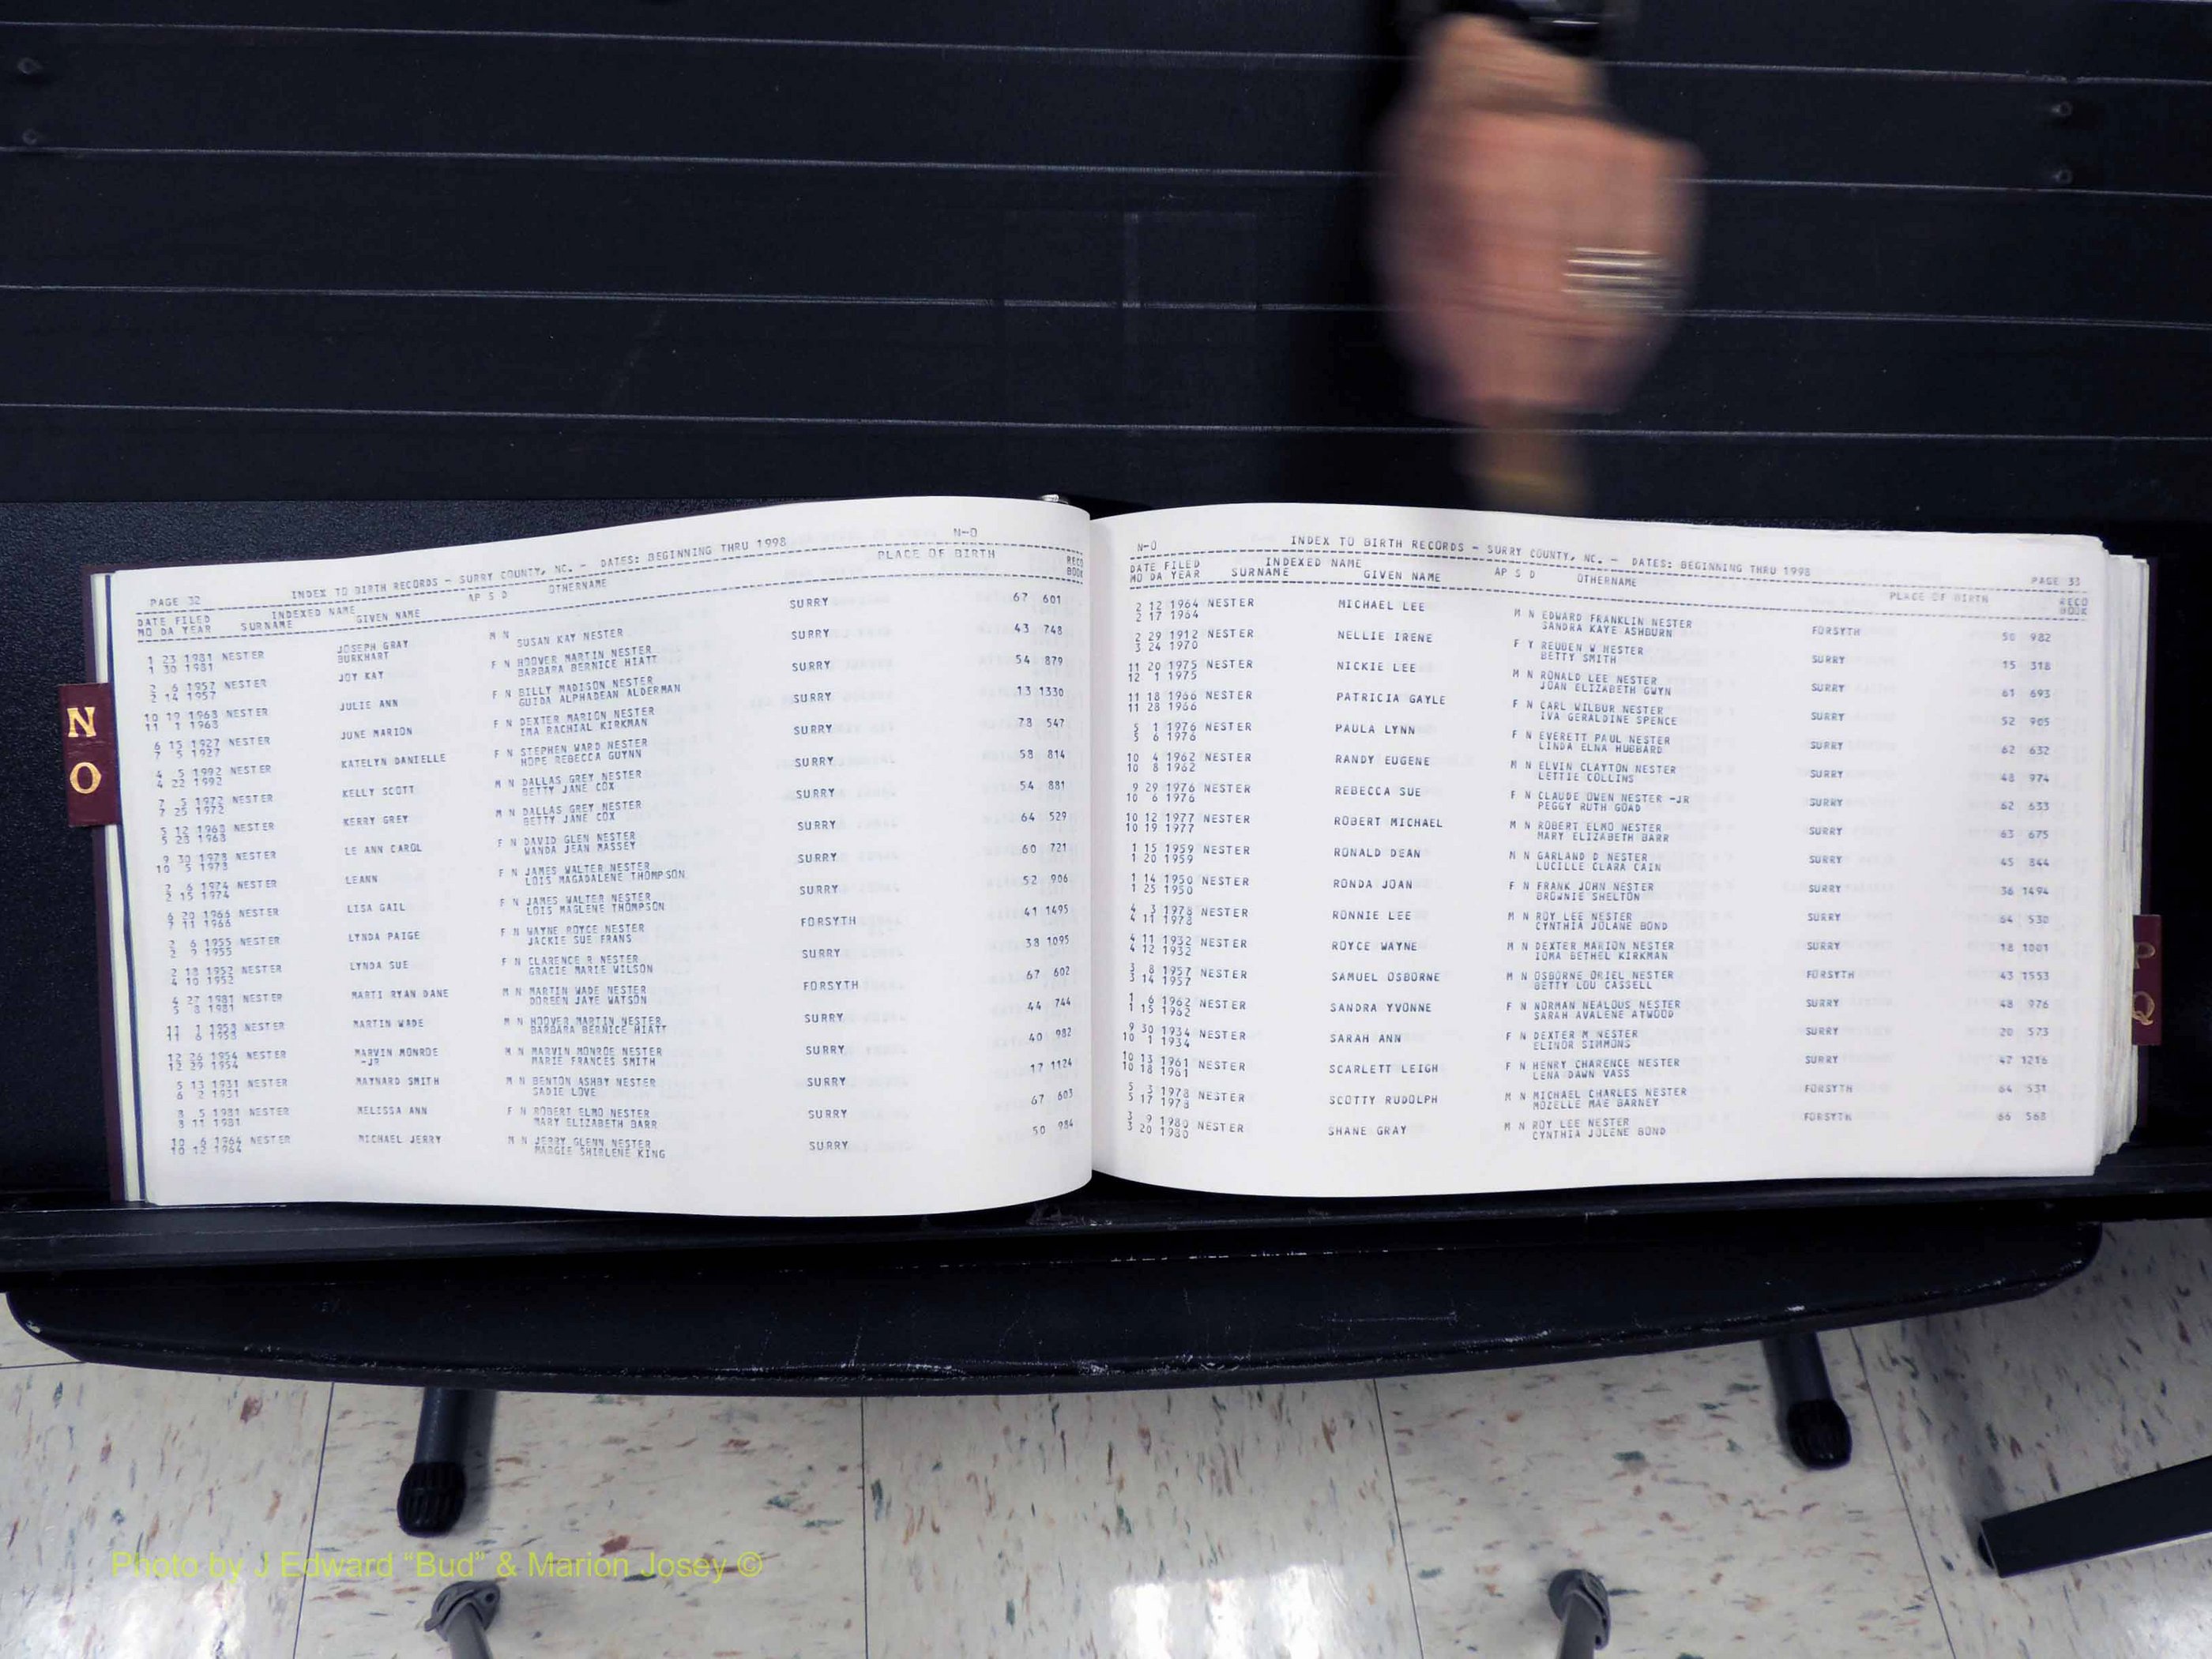 N
O
PAGE 32 INDEX TO BIRTH RECORDS - SURRY COUNTY, NC. - DATES: BEGINNING THRU 1998 N-O
DATE FILED INDEXED NAME PLACE OF BIRTH RECO
MO DA YEAR SURNAME GIVEN NAME AP S D OTHERNAME BOOK
1 23 1981 NESTER JOSEPH GRAY M N SURRY 67 601
1 30 1981 BURKHART SUSAN KAY NESTER
2 6 1957 NESTER JOY KAY F N HOOVER MARTIN NESTER SURRY 43 748
2 14 1957 BARBARA BERNICE HIATT
10 19 1963 NESTER JULIE ANN F N BILLY MADISON NESTER SURRY 54 879
11 1 1963 GUIDA ALPHADEAN ALDERMAN
6 15 1927 NESTER JUNE MARION F N DEXTER MARION NESTER SURRY 13 1330
7 5 1927 IMA RACHIAL KIRKMAN
4 5 1992 NESTER KATELYN DANIELLE F N STEPHEN WARD NESTER SURRY 78 547
4 22 1992 HOPE REBECCA GUYNN
7 5 1972 NESTER KELLY SCOTT M N DALLAS GREY NESTER SURRY 58 814
7 25 1972 BETTY JANE COX
5 12 1968 NESTER KERRY GREY M N DALLAS GREY NESTER SURRY 54 881
5 23 1968 BETTY JANE COX
9 30 1978 NESTER LE ANN CAROL F N DAVID GLEN NESTER SURRY 64 529
10 5 1978 WANDA JEAN MASSEY
2 6 1974 NESTER LEANN F N JAMES WALTER NESTER SURRY 60 721
2 15 1974 LOIS MAGADALENE THOMPSON
6 20 1966 NESTER LISA GAIL F N JAMES WALTER NESTER SURRY 52 906
7 11 1966 LOIS MAGLENE THOMPSON
2 6 1955 NESTER LYNDA PAIGE F N WAYNE ROYCE NESTER FORSYTH 41 1495
2 9 1955 JACKIE SUE FRANS
2 18 1952 NESTER LYNDA SUE F N CLARENCE R NESTER SURRY 38 1095
4 10 1952 GRACIE MARIE WILSON
4 27 1981 NESTER MARTI RYAN DANE M N MARTIN WADE NESTER FORSYTH 67 602
5 8 1981 DOREEN JAYE WATSON
11 1 1958 NESTER MARTIN WADE M N HOOVER MARTIN NESTER SURRY 44 744
11 6 1958 BARBARA BERNICE HIATT
12 26 1954 NESTER MARVIN MONROE M N MARVIN MONROE NESTER SURRY 40 982
12 29 1954 -JR MARIE FRANCES SMITH
5 13 1931 NESTER MAYNARD SMITH M N BENTON ASHBY NESTER SURRY 17 1124
6 2 1931 SADIE LOVE
3 5 1981 NESTER MELISSA ANN F N ROBERT ELMO NESTER SURRY 67 603
3 11 1981 MARY ELIZABETH BARR
10 6 1964 NESTER MICHAEL JERRY M N JERRY GLENN NESTER SURRY 50 984
10 12 1964 MARGIE SHIRLENE KING
N-O INDEX TO BIRTH RECORDS - SURRY COUNTY, NC. - DATES: BEGINNING THRU 1998 PAGE 33
DATE FILED INDEXED NAME PLACE OF BIRTH RECO
MO DA YEAR SURNAME GIVEN NAME AP S D OTHERNAME BOOK
2 12 1964 NESTER MICHAEL LEE M N EDWARD FRANKLIN NESTER FORSYTH 50 982
2 17 1964 SANDRA KAYE ASHBURN
2 29 1912 NESTER NELLIE IRENE F Y REUBEN W NESTER SURRY 15 318
3 24 1970 BETTY SMITH
11 20 1975 NESTER NICKIE LEE M N RONALD LEE NESTER SURRY 61 693
12 1 1975 JOAN ELIZABETH GWYN
11 18 1966 NESTER PATRICIA GAYLE F N CARL WILBUR NESTER SURRY 52 905
11 28 1966 IVA GERALDINE SPENCE
5 1 1976 NESTER PAULA LYNN F N EVERETT PAUL NESTER SURRY 62 632
5 6 1976 LINDA ELNA HUBBARD
10 4 1962 NESTER RANDY EUGENE M N ELVIN CLAYTON NESTER SURRY 48 974
10 8 1962 LETTIE COLLINS
9 29 1976 NESTER REBECCA SUE F N CLAUDE OWEN NESTER -JR SURRY 62 633
10 6 1976 PEGGY RUTH GOAD
10 12 1977 NESTER ROBERT MICHAEL M N ROBERT ELMO NESTER SURRY 63 675
10 19 1977 MARY ELIZABETH BARR
1 15 1959 NESTER RONALD DEAN M N GARLAND D NESTER SURRY 45 844
1 20 1959 LUCILLE CLARA CAIN
1 14 1950 NESTER RONDA JOAN F N FRANK JOHN NESTER SURRY 36 1494
1 25 1950 BROWNIE SHELTON
4 3 1978 NESTER RONNIE LEE M N ROY LEE NESTER SURRY 64 530
4 11 1978 CYNTHIA JOLANE BOND
4 11 1932 NESTER ROYCE WAYNE M N DEXTER MARION NESTER SURRY 18 1001
4 12 1932 IOMA BETHEL KIRKMAN
3 8 1957 NESTER SAMUEL OSBORNE M N OSBORNE ORIEL NESTER FORSYTH 43 1553
3 14 1957 BETTY LOU CASSELL
1 6 1962 NESTER SANDRA YVONNE F N NORMAN NEALOUS NESTER SURRY 48 976
1 15 1962 SARAH AVALENE ATWOOD
9 30 1934 NESTER SARAH ANN F N DEXTER M NESTER SURRY 20 573
10 1 1934 ELINOR SIMMONS
10 13 1961 NESTER SCARLETT LEIGH F N HENRY CHARENCE NESTER SURRY 47 1216
10 18 1961 LENA DAWN VASS
5 3 1978 NESTER SCOTTY RUDOLPH M N MICHAEL CHARLES NESTER FORSYTH 64 531
5 17 1978 MOZELLE MAE BARNEY
3 9 1980 NESTER SHANE GRAY M N ROY LEE NESTER FORSYTH 66 568
3 20 1980 CYNTHIA JOLENE BOND
P
Q
Photo by J Edward “Bud” & Marion Josey ©